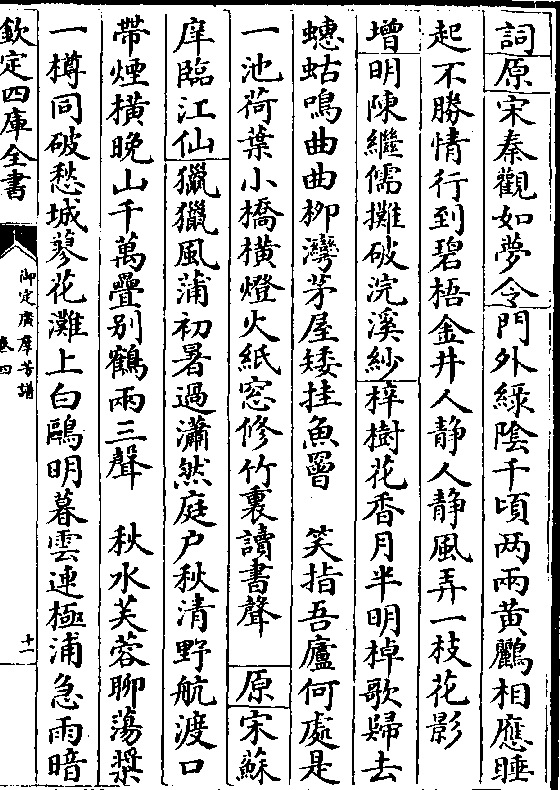 詞原宋秦觀如夢令門外綠陰千頃两兩黃鸝相應睡
起不勝情行到碧梧金井人静人静風弄一枝花影
增明陳繼儒攤破浣溪紗梓樹花香月半明棹歌歸去
蟪蛄鳴曲曲柳灣茅屋矮挂魚罾　笑指吾廬何處是
一池荷葉小橋橫燈火紙窓修竹裏讀書聲　原宋蘇
庠臨江仙獵獵風蒲初暑過瀟然庭户秋清野航渡口
帶煙橫晚山千萬疊别鶴兩三聲　秋水芙蓉聊蕩槳
一樽同破愁城蓼花灘上白鷗明暮雲連極浦急雨暗
欽定四庫全書
御定廣羣芳譜
卷四
十一